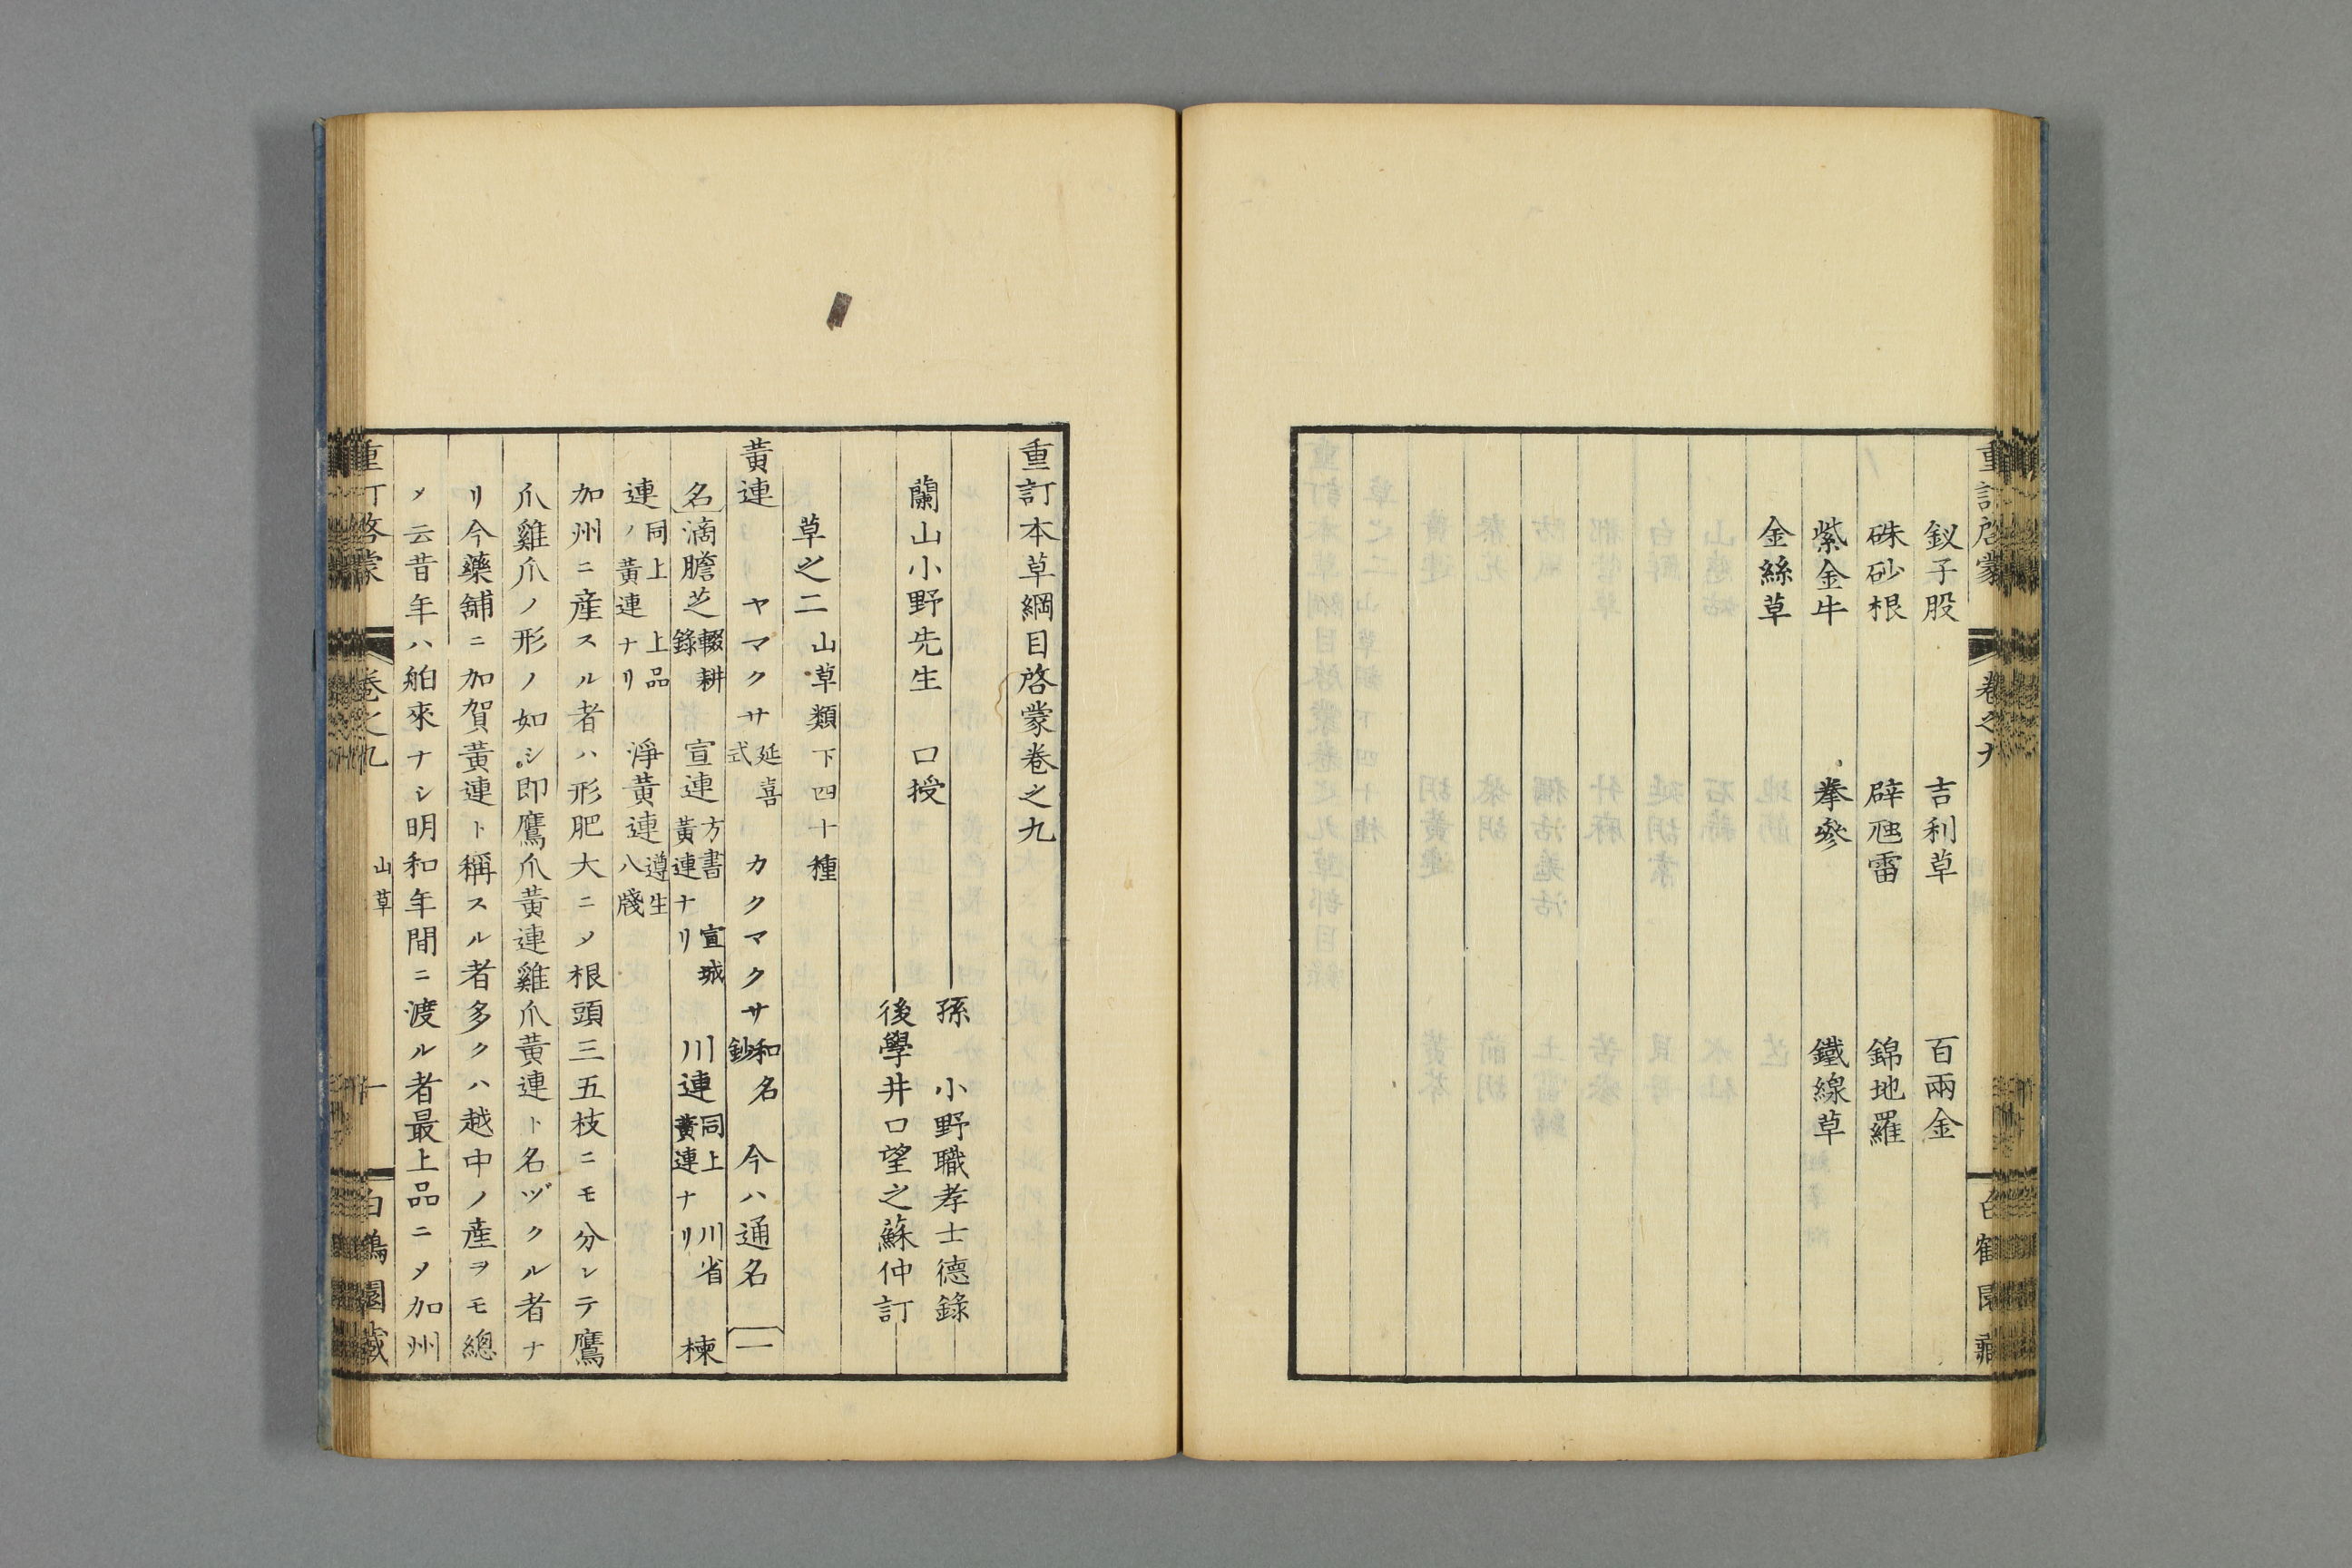 釵子股 吉利草 百兩金
硃砂根 辟虺雷 錦地羅
紫金牛 拳參 鐵線草
金絲草
重訂本草綱目啓蒙卷之九
蘭山小野先生 口授
孫 小野職孝士德錄
後學井口望之蘇仲訂
草之二 山草類下四十種
黃連 ヤマクサ 延喜式 カクマクサ 和名鈔 今ハ通名 一
名 滴膽芝 輟耕錄 宣連 方書 宣城黃連ナリ 川連 同上 川省黃連ナリ 楝
連 同上 上品ノ黃連ナリ 淨黃連 遵生八牋
加州ニ産スル者ハ形肥大ニメ根頭三五枝ニモ分レテ鷹
爪雞爪ノ形ノ如シ即鷹爪黃連雞爪黃連ト名ヅクル者ナ
リ今藥舖ニ加賀黃連ト稱スル者多クハ越中ノ産ヲモ總
メ云昔年ハ舶來ナシ明和年間ニ渡ル者最上品ニメ加州
重訂啓蒙 卷之九 山草 一 白鶴園藏